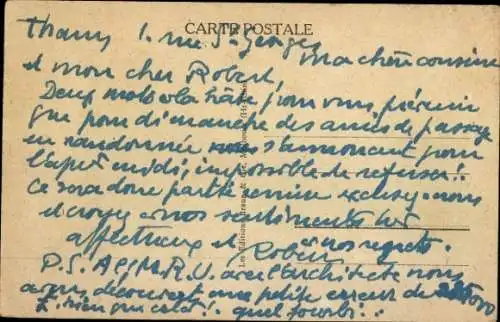 CARTE POSTALE
Thann, 1. rue St Georges
Ma chère cousine
et mon cher Robert,
Deux mots à la hâte pour vous prévenir
que pour dimanche des amis de passage
en randonnée s'annoncent pour
l'après midi, impossible de refuser!!
Ce sera donc partie remise excusez-nous
et croyez à nos sentiments très
affectueux et à nos regrets.
Robert
P.S. Al M.R.U. avec l'architecte nous
avons découvert une petite erreur de
rien que cela!! quel fourbi!!
Les Editions